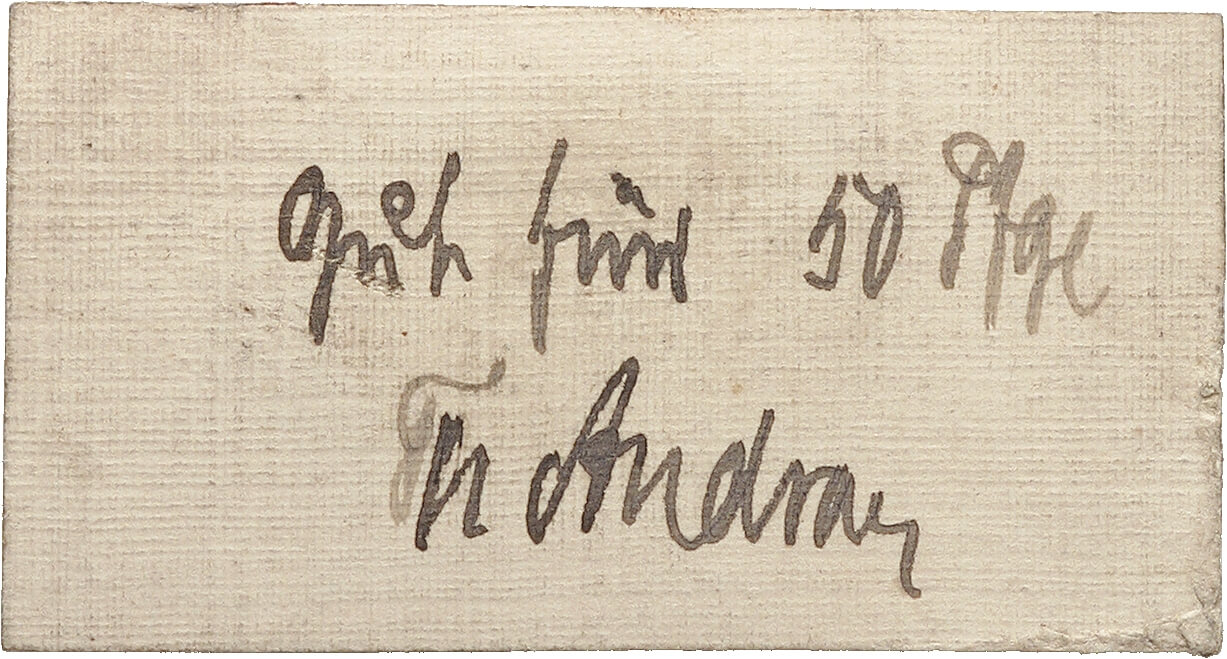 Gut für 50 Pfge
Fr Andrae